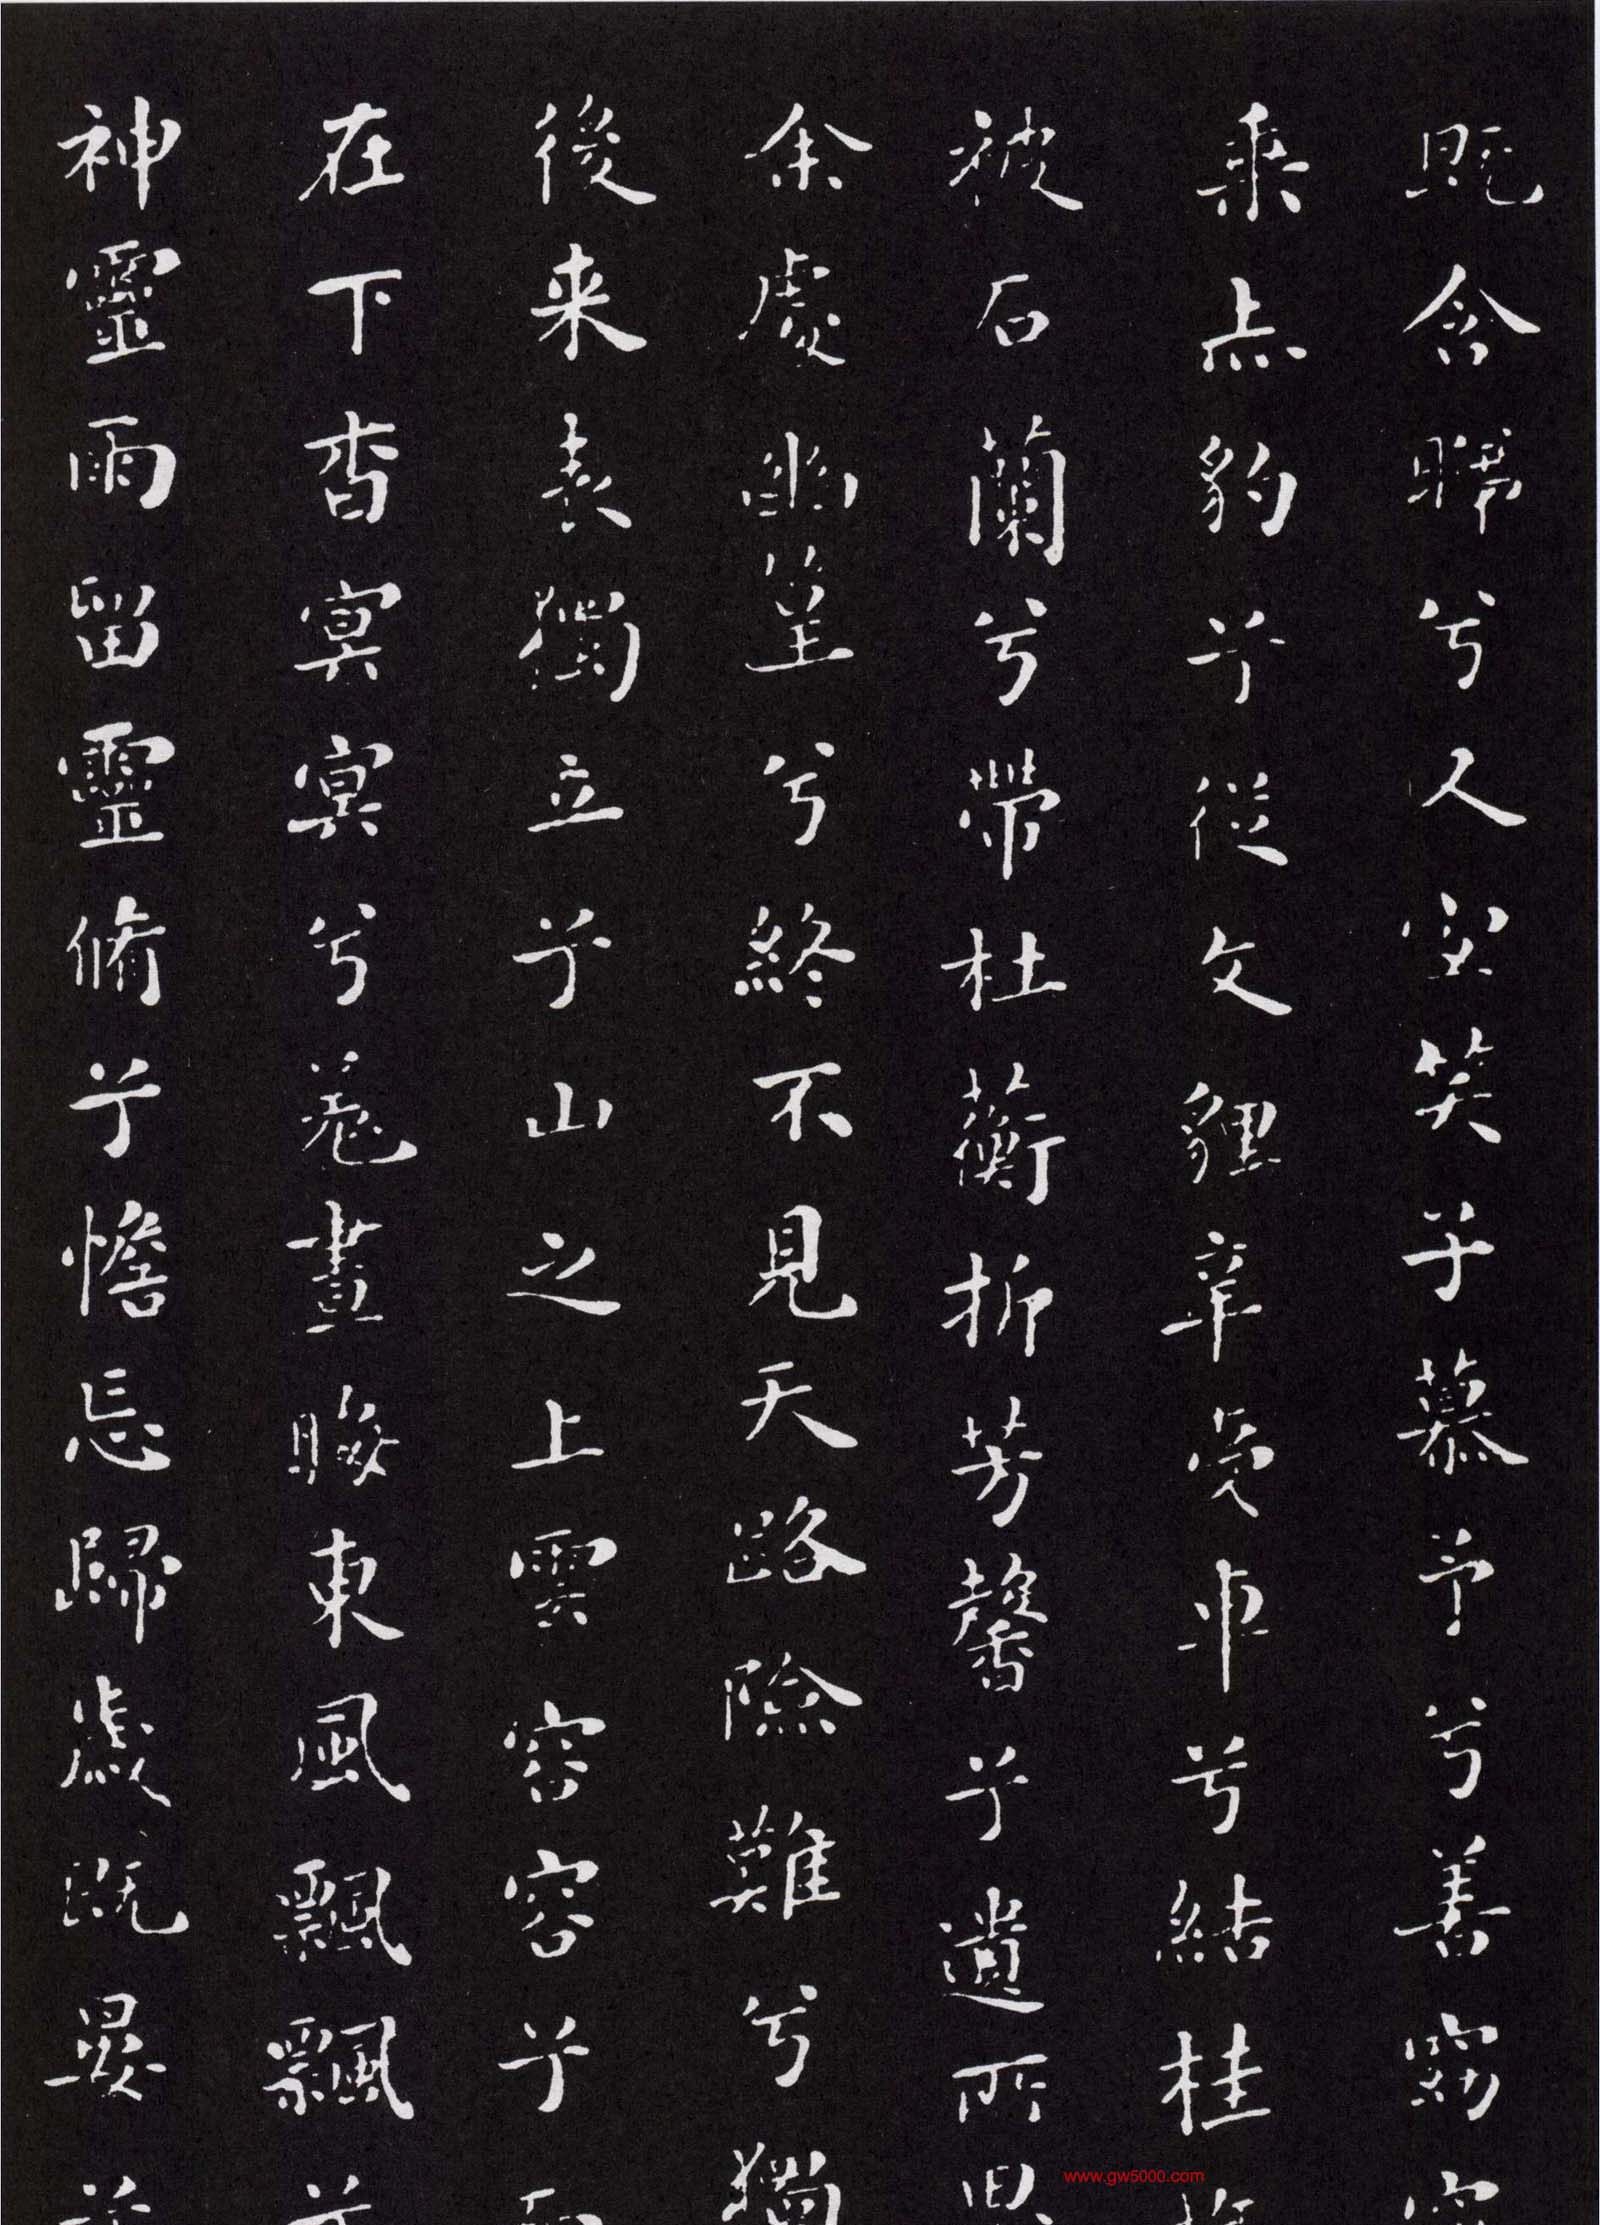 既含睇兮又宜笑子慕予兮善窈窕
乘赤豹兮從文貍辛夷車兮結桂
被石蘭兮帶杜蘅折芳馨兮遺所思
余處幽篁兮終不見天路險難兮獨
後来表獨立兮山之上雲容容兮而
在下杳冥冥兮羌晝晦東風飄飄兮
神靈雨留靈脩兮憺忘歸歲既晏兮
www.gw5000.com